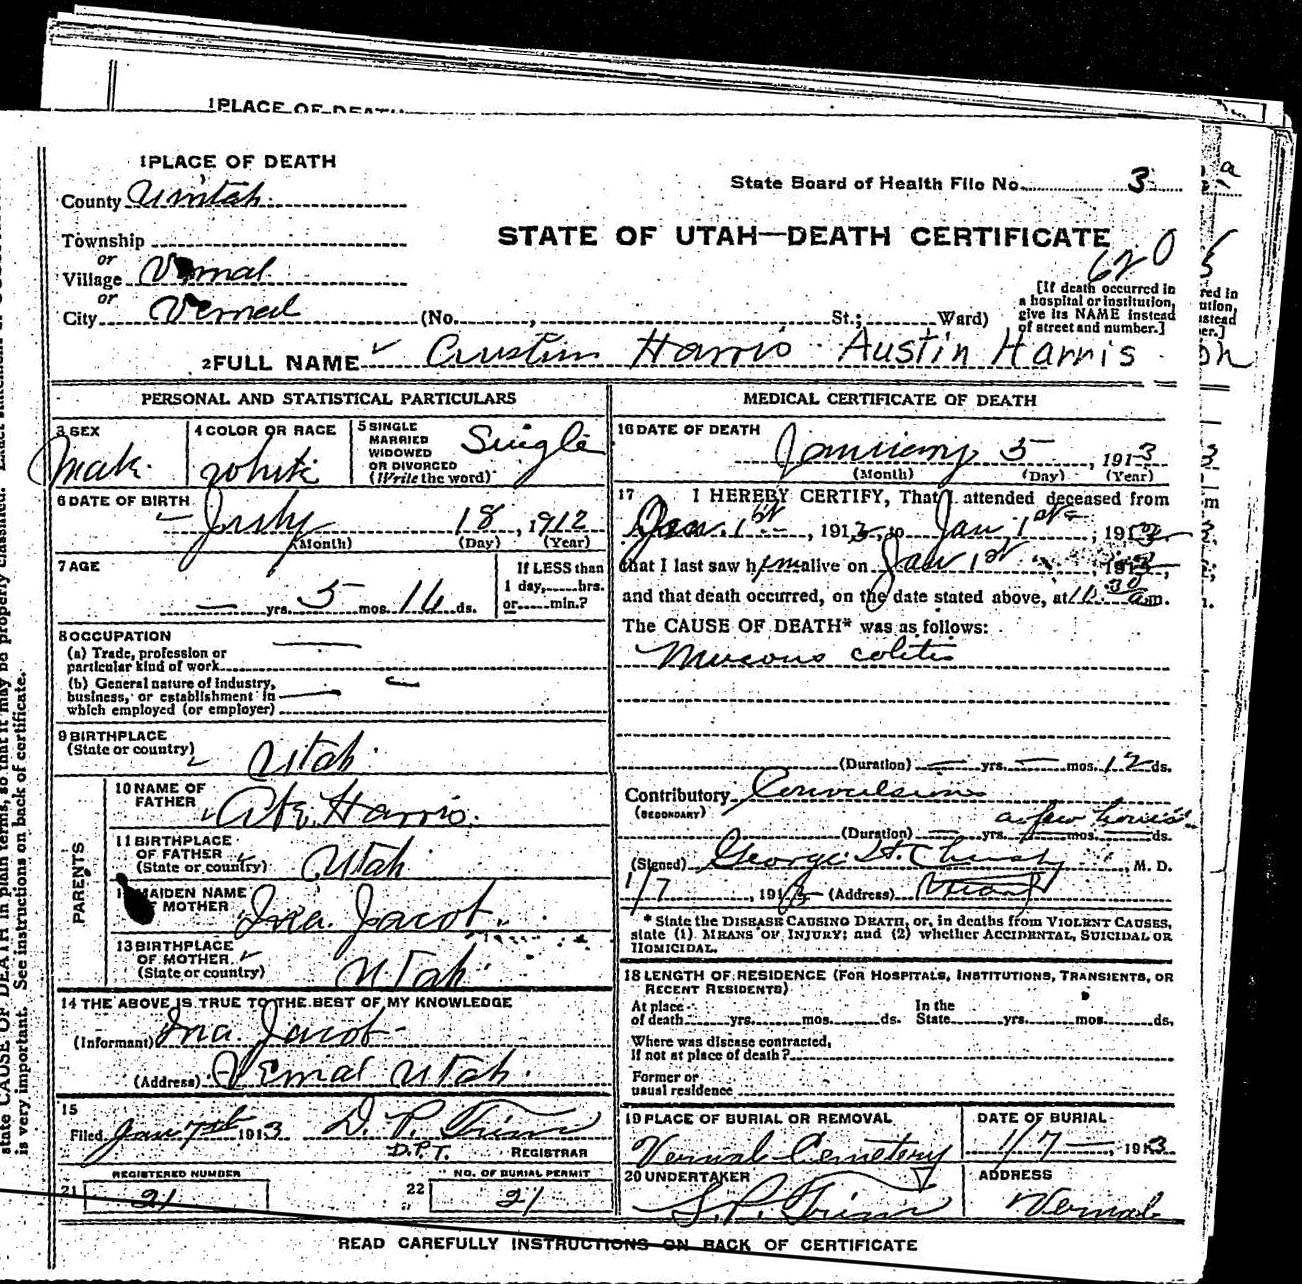 1 PLACE OF DEATH
1 PLACE OF DEATH
State Board of Health File No. 3
County Uintah
STATE OF UTAH—DEATH CERTIFICATE
Township
or
Village Vernal
620
[If death occurred in a hospital or institution, give its NAME instead of street and number.]
or
City Vernal (No. , St.; Ward)
2 FULL NAME Austin Harris Austin Harris
PERSONAL AND STATISTICAL PARTICULARS
3 SEX Male
4 COLOR OR RACE white
5 SINGLE MARRIED WIDOWED OR DIVORCED (Write the word) Single
6 DATE OF BIRTH July 18, 1912
(Month) (Day) (Year)
7 AGE — yrs. 5 mos. ds.
If LESS than 1 day, hrs. or min.?
8 OCCUPATION
(a) Trade, profession or
particular kind of work
(b) General nature of industry,
business, or establishment in
which employed (or employer)
9 BIRTHPLACE
(State or country) Utah
PARENTS
10 NAME OF FATHER Harris
11 BIRTHPLACE OF FATHER (State or country) Utah
MAIDEN NAME OF MOTHER Ina Jacob
13 BIRTHPLACE OF MOTHER (State or country) Utah
14 THE ABOVE IS TRUE TO THE BEST OF MY KNOWLEDGE
(Informant) Ina Jacob
(Address) Vernal Utah
15
Filed Jan 7th 1913
D.P.T. REGISTRAR
REGISTERED NUMBER
NO. OF BURIAL PERMIT
21 21
22 21
MEDICAL CERTIFICATE OF DEATH
16 DATE OF DEATH
January 5, 1913
(Month) (Day) (Year)
17 I HEREBY CERTIFY, That I attended deceased from
Jan. 1st, 1913, to Jan. 1st, 1913,
that I last saw him alive on Jan 1st, 1913,
and that death occurred, on the date stated above, at a.m.
The CAUSE OF DEATH* was as follows:
Mucous colitis
(Duration) — yrs. — mos. 12 ds.
Contributory Convulsions
(SECONDARY)
a few hours
(Duration) — yrs. — mos. — ds.
(Signed) George H. Christy, M. D.
1/7, 1913 (Address) Vernal
* State the DISEASE CAUSING DEATH, or, in deaths from VIOLENT CAUSES,
state (1) MEANS OF INJURY; and (2) whether ACCIDENTAL, SUICIDAL OR
HOMICIDAL.
18 LENGTH OF RESIDENCE (FOR HOSPITALS, INSTITUTIONS, TRANSIENTS, OR
RECENT RESIDENTS)
At place of death yrs. mos. ds. In the State yrs. mos. ds.
Where was disease contracted,
if not at place of death?
Former or
usual residence
19 PLACE OF BURIAL OR REMOVAL
Vernal Cemetery
DATE OF BURIAL
1/7, 1913
20 UNDERTAKER
ADDRESS
Vernal
READ CAREFULLY INSTRUCTIONS ON BACK OF CERTIFICATE
state CAUSE OF DEATH in plain terms, so that it may be properly classified.
is very important. See instructions on back of certificate.